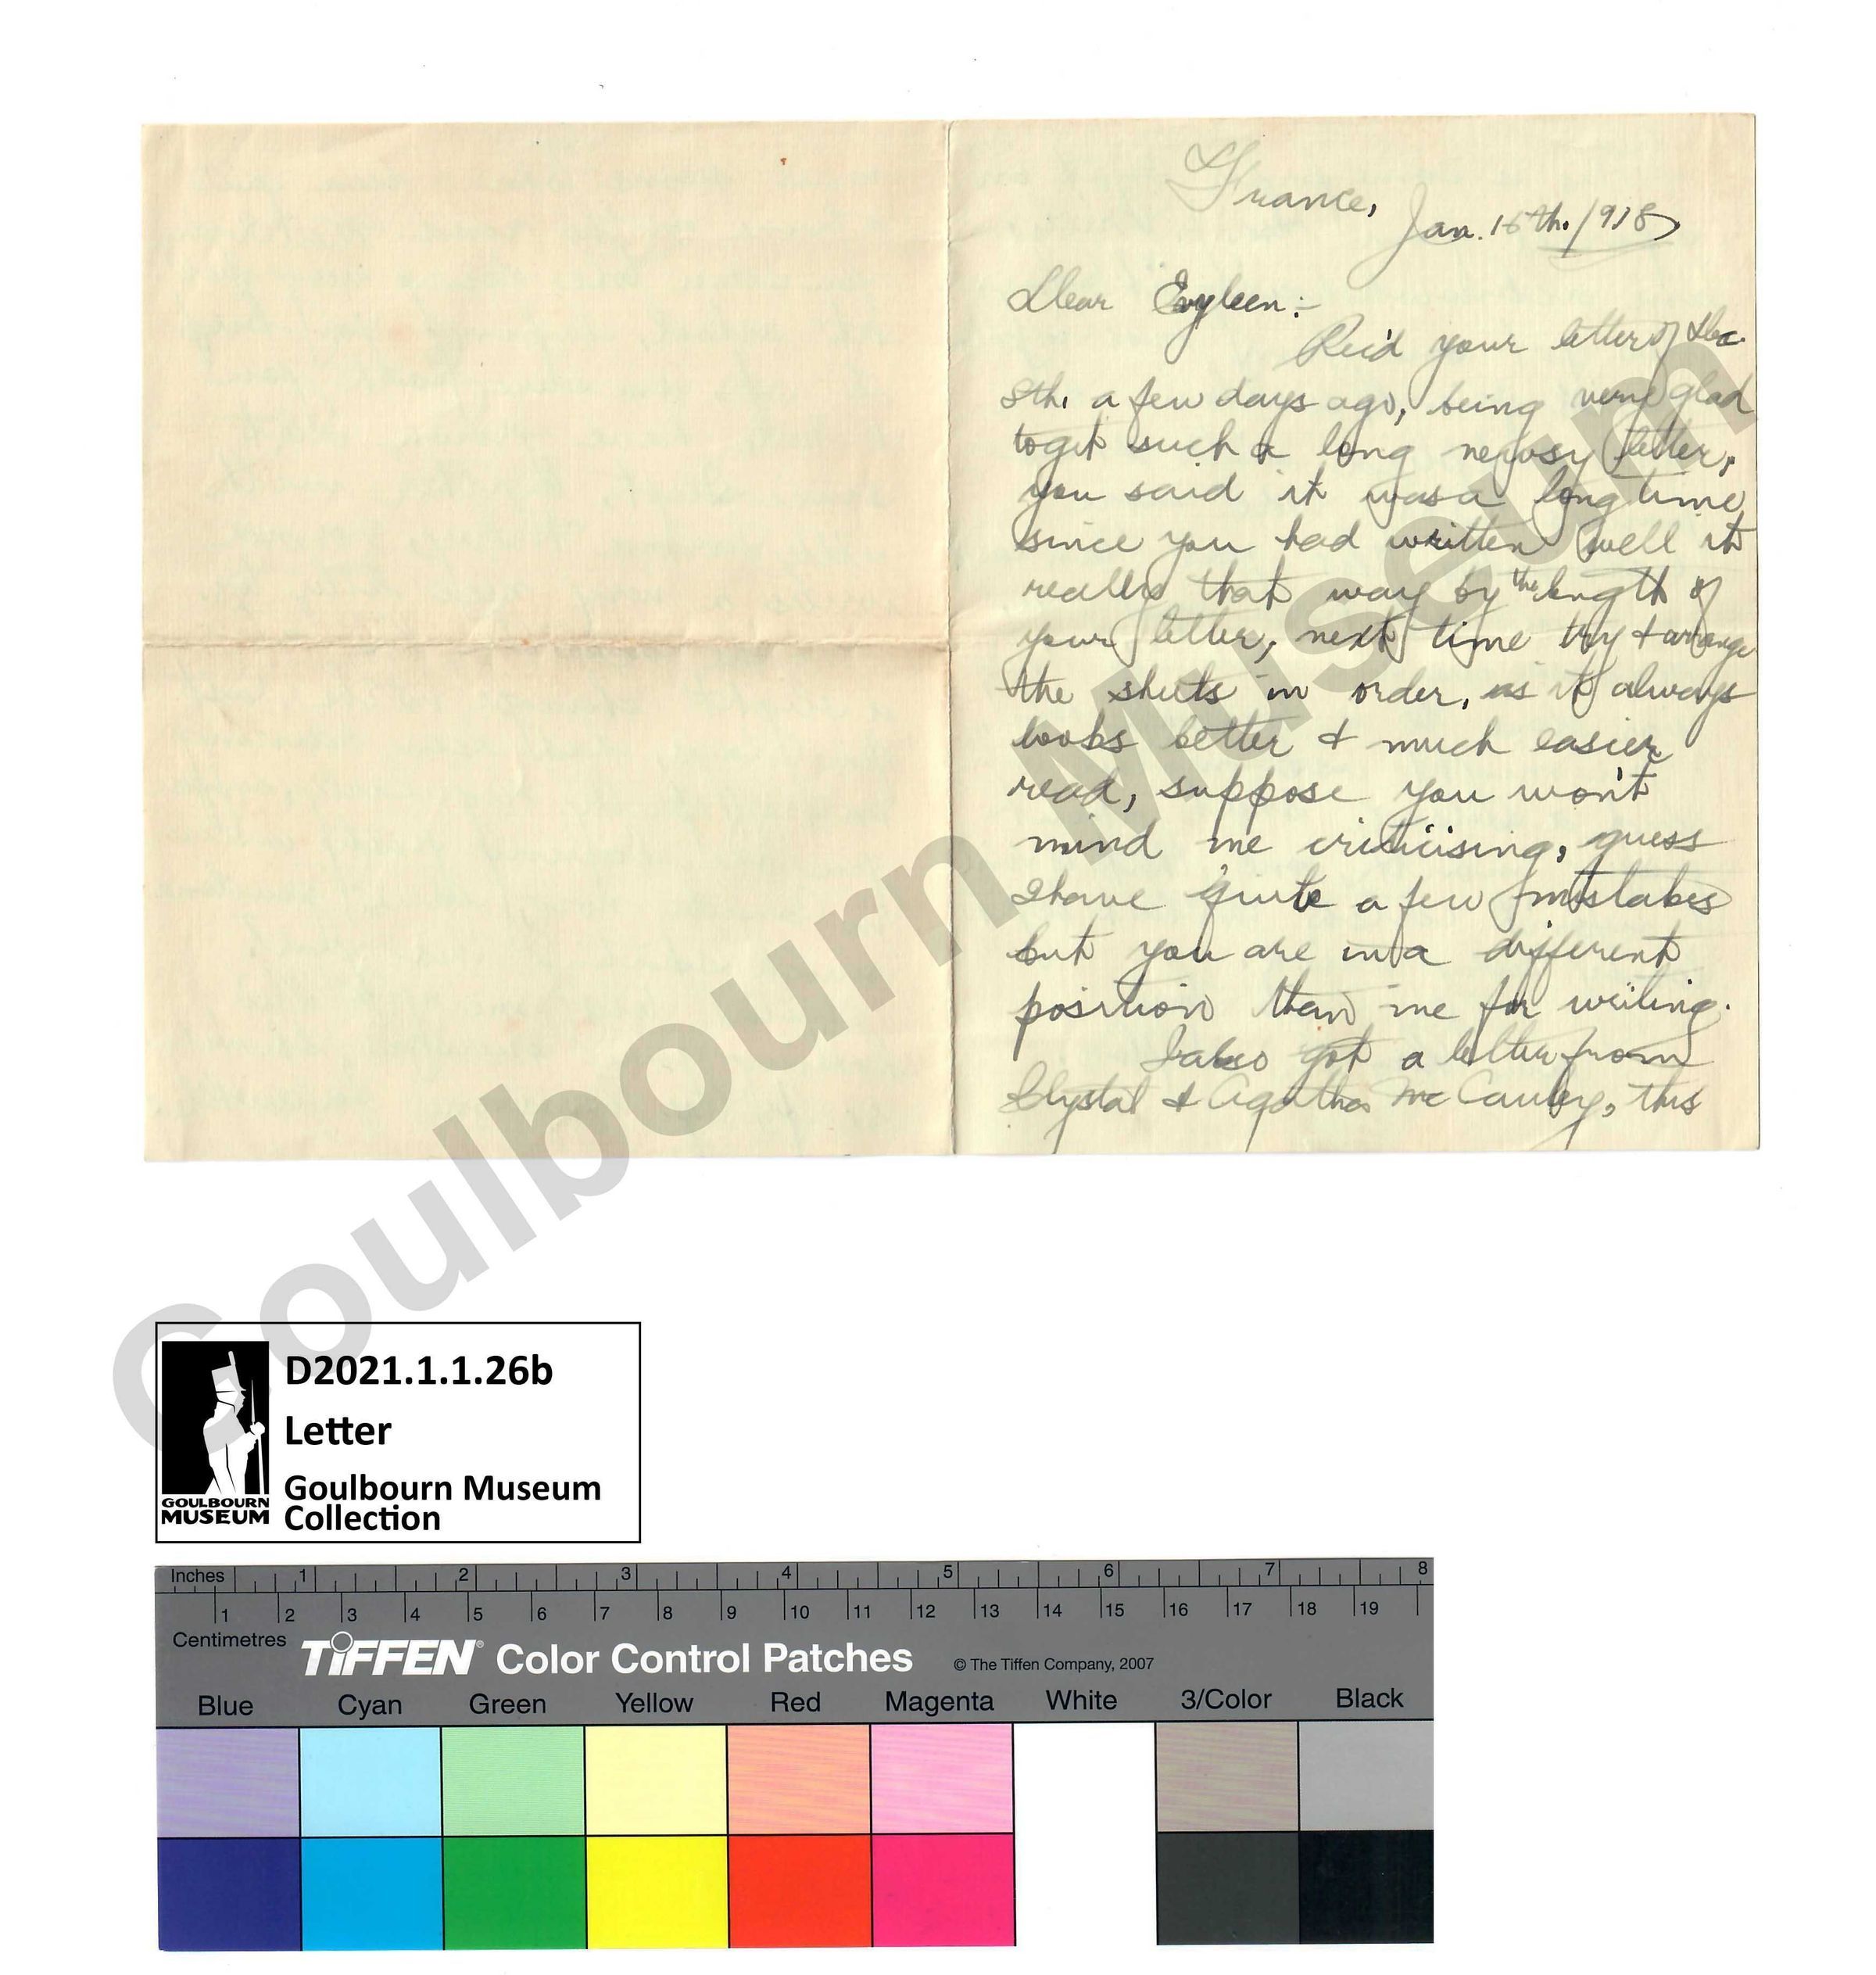 France,
Jan. 15th. 1918
Dear Evyleen:-
Rec'd your letter of Dec.
8th. a few days ago, being very glad
to get such a long newsy letter,
you said it was a long time
since you had written well it
really that way by the length of
your letter, next time try & arrange
the sheets in order, as it always
looks better & much easier
read, suppose you won't
mind me criticising, guess
I have quite a few mistakes
but you are in a different
position than me for writing.
I also got a letter from
Chystal & Agatha McCauley, this
Goulbourn Museum
D2021.1.1.26b
Letter
Goulbourn Museum
Collection
GOULBOURN
MUSEUM
Inches 1 2 3 4 5 6 7 8
1 2 3 4 5 6 7 8 9 10 11 12 13 14 15 16 17 18 19
Centimetres
TIFFEN® Color Control Patches © The Tiffen Company, 2007
Blue Cyan Green Yellow Red Magenta White 3/Color Black